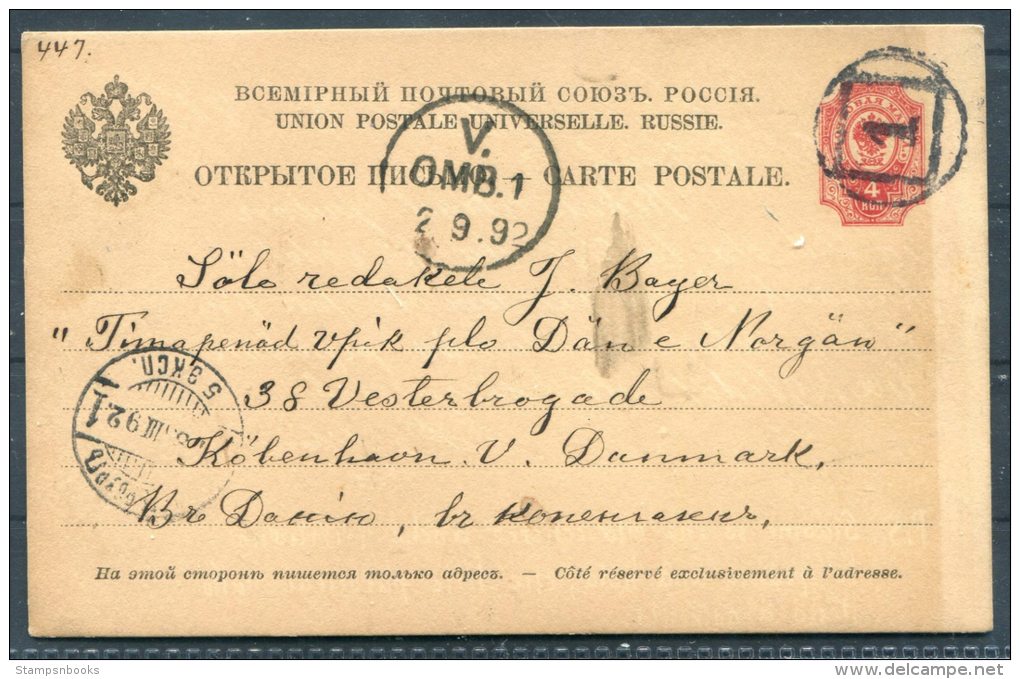 447.
ВСЕМІРНЫЙ ПОЧТОВЫЙ СОЮЗЪ. РОССІЯ.
UNION POSTALE UNIVERSELLE. RUSSIE.
ОТКРЫТОЕ ПИСЬМО. — CARTE POSTALE.
1
4
КОП
V.
OMB.1
2 9.92
Sölo redakele J. Bayer
"Timapenäd vpik plo Dän e Norgän"
5 ЭКСП.
III 92 1
38 Vesterbrogade
Köbenhavn. V. Danmark,
Въ Данію, въ Копенгагенъ,
На этой сторонѣ пишется только адресъ. — Côté réservé exclusivement à l'adresse.
Stampsnbooks
www.delcampe.net